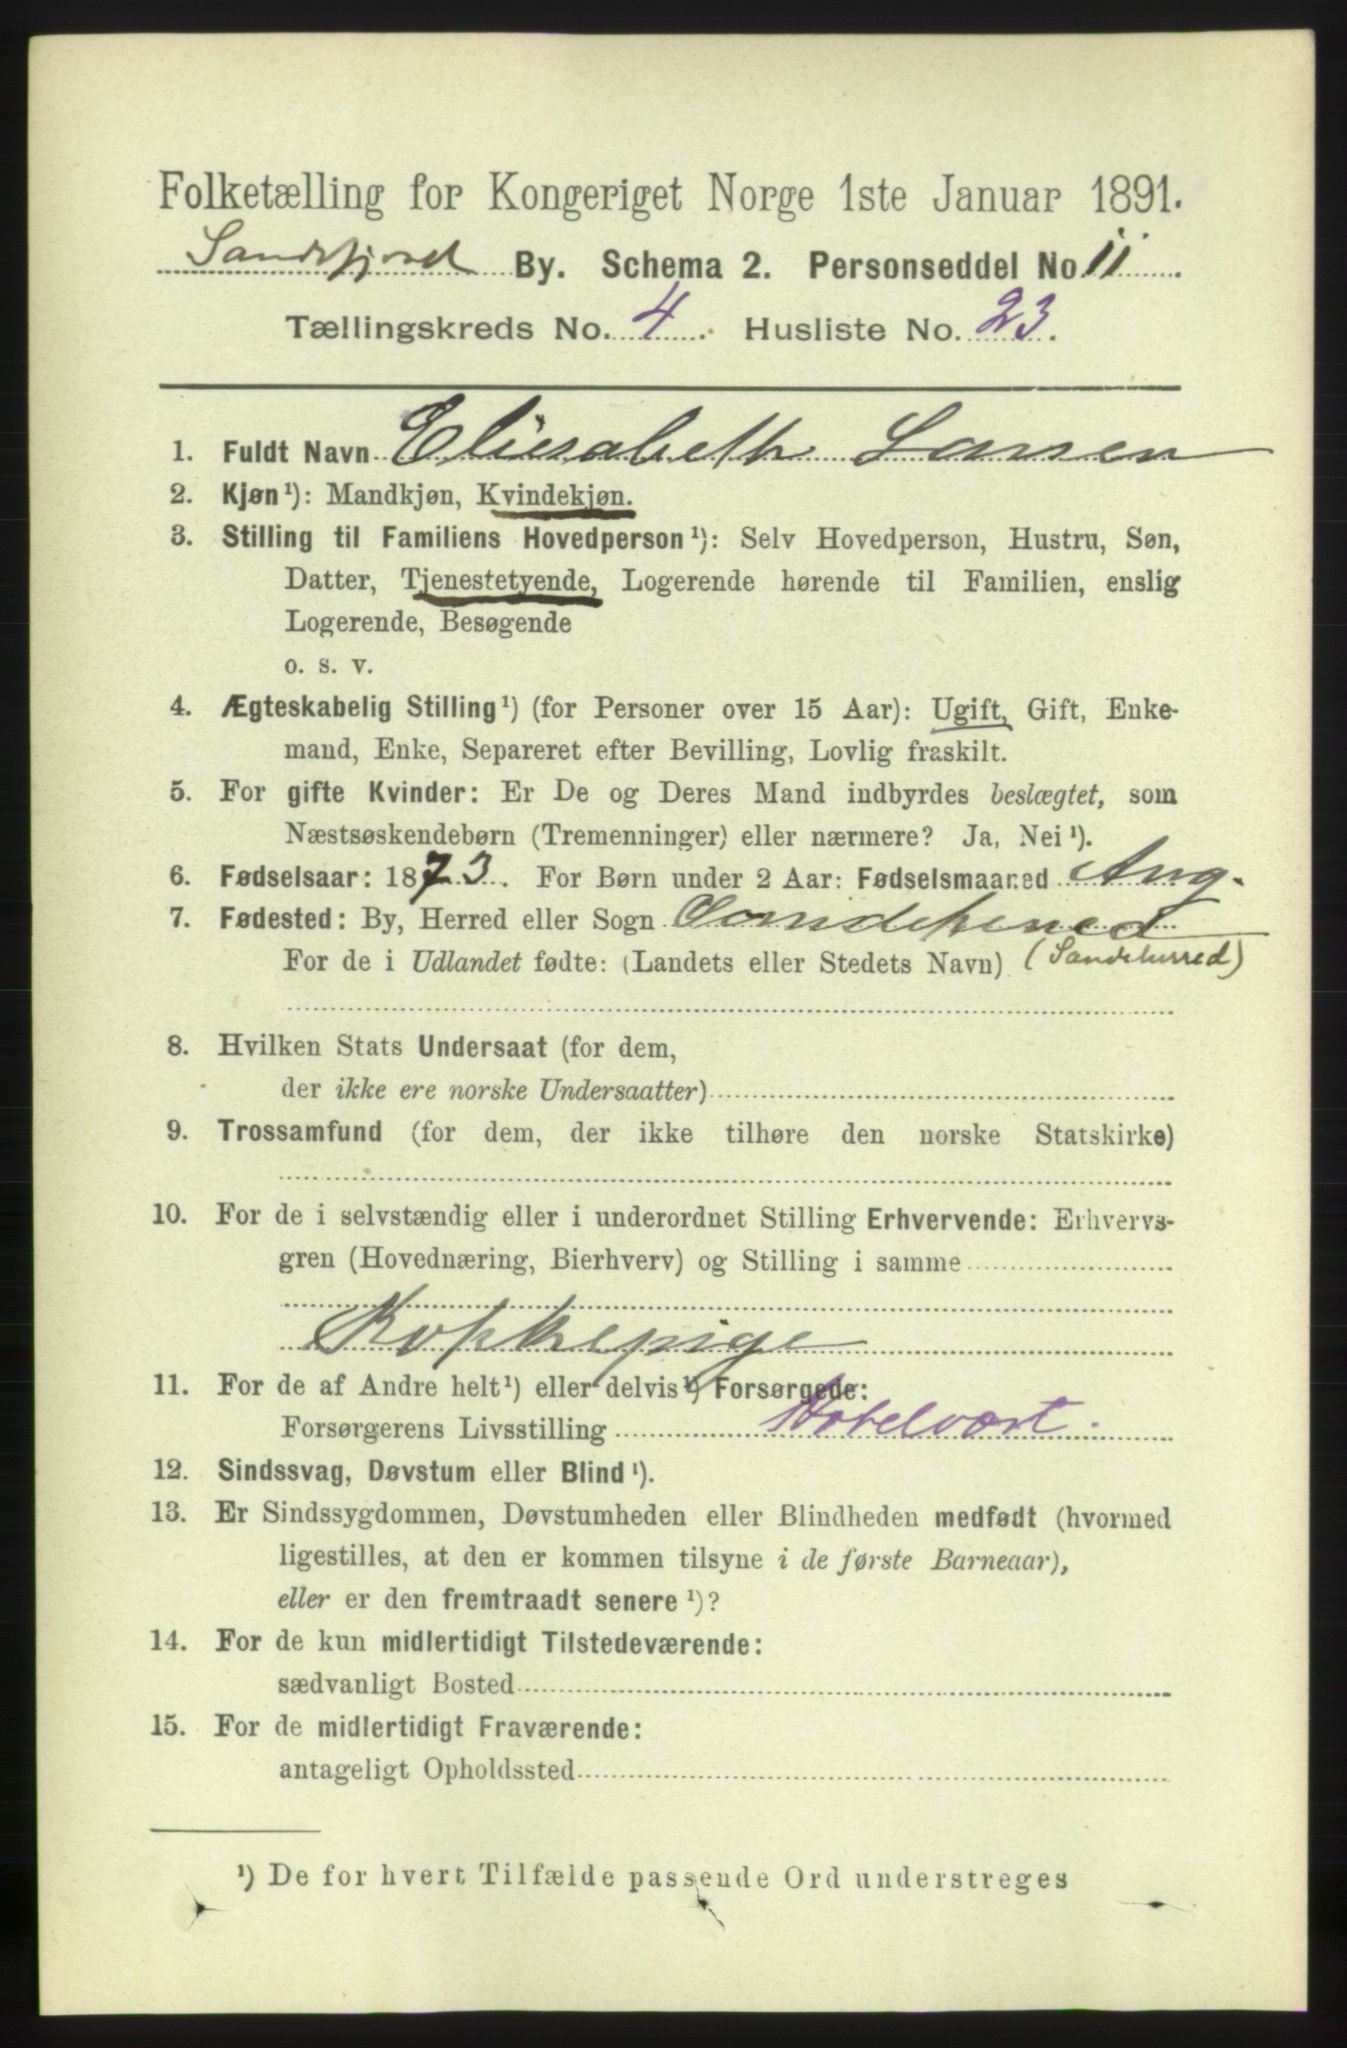 Folketælling for Kongeriget Norge 1ste Januar 1891.
Sandefjord By. Schema 2. Personseddel No 11
Tællingskreds No. 4. Husliste No. 23.
1. Fuldt Navn Eliesabeth Larsen
2. Kjøn¹): Mandkjøn, Kvindekjøn.
3. Stilling til Familiens Hovedperson¹): Selv Hovedperson, Hustru, Søn,
Datter, Tjenestetyende, Logerende hørende til Familien, enslig
Logerende, Besøgende
o. s. v.
4. Ægteskabelig Stilling¹) (for Personer over 15 Aar): Ugift, Gift, Enke-
mand, Enke, Separeret efter Bevilling, Lovlig fraskilt.
5. For gifte Kvinder: Er De og Deres Mand indbyrdes beslægtet, som
Næstsøskendebørn (Tremenninger) eller nærmere? Ja, Nei¹).
6. Fødselsaar: 1873. For Børn under 2 Aar: Fødselsmaaned Aug.
7. Fødested: By, Herred eller Sogn
For de i Udlandet fødte: (Landets eller Stedets Navn) (Sandeherred)
8. Hvilken Stats Undersaat (for dem,
der ikke ere norske Undersaatter)
9. Trossamfund (for dem, der ikke tilhøre den norske Statskirke)
10. For de i selvstændig eller i underordnet Stilling Erhvervende: Erhvervs-
gren (Hovednæring, Bierhverv) og Stilling i samme
Kokkepige
11. For de af Andre helt¹) eller delvis¹) Forsørgede:
Forsørgerens Livsstilling Hotelvært.
12. Sindssvag, Døvstum eller Blind¹).
13. Er Sindssygdommen, Døvstumheden eller Blindheden medfødt (hvormed
ligestilles, at den er kommen tilsyne i de første Barneaar),
eller er den fremtraadt senere¹)?
14. For de kun midlertidigt Tilstedeværende:
sædvanligt Bosted
15. For de midlertidigt Fraværende:
antageligt Opholdssted
¹) De for hvert Tilfælde passende Ord understreges